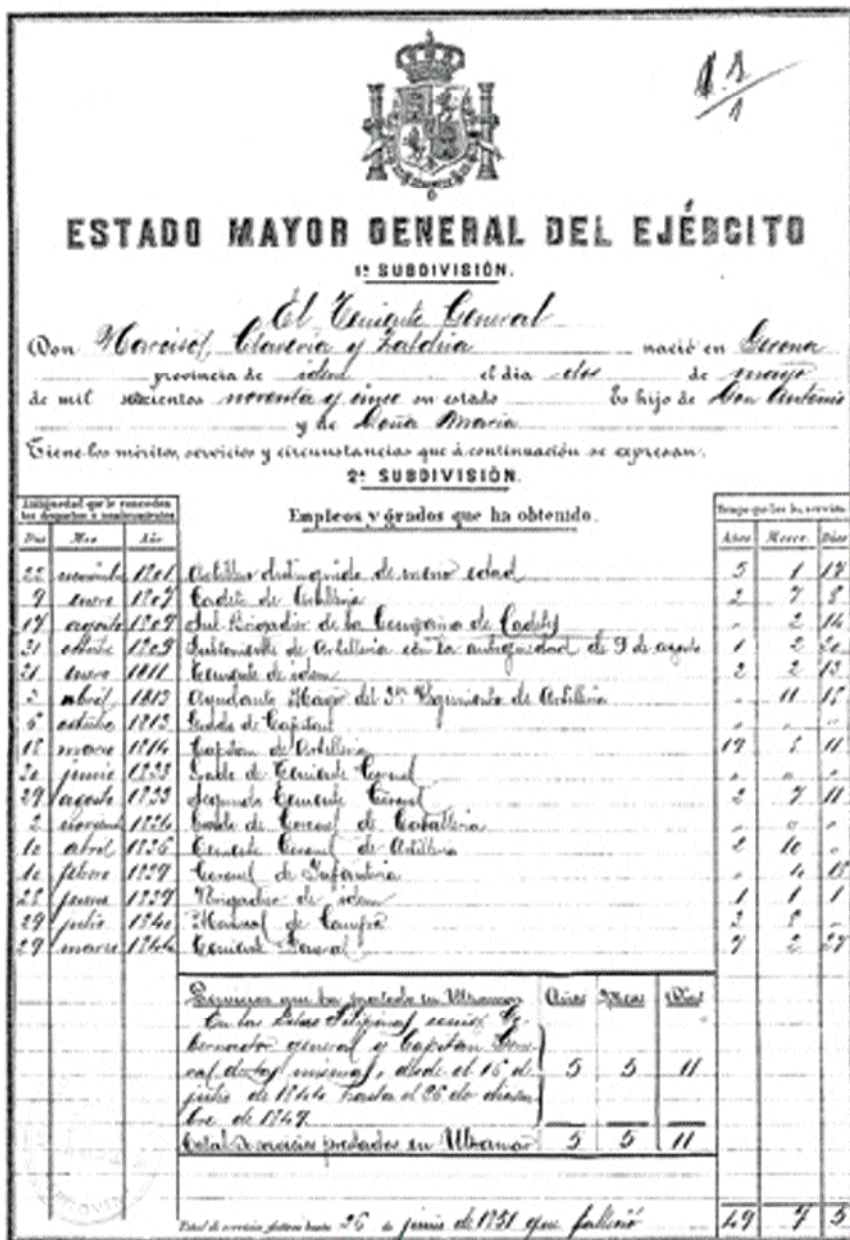 ESTADO MAYOR GENERAL DEL EJÉRCITO
1ª SUBDIVISIÓN.
El Teniente General
Don Narciso Claveria y Zaldua nació en Gerona
provincia de idem el dia dos de mayo
de mil setecientos noventa y cinco su estado Es hijo de Don Antonio
y de Doña Maria
Tiene los méritos, servicios y circunstancias que á continuación se expresan.
2ª SUBDIVISIÓN.
Antigüedad que le conceden los despachos ó nombramientos
Empleos y grados que ha obtenido.
Tiempo que los ha servido
Dia Mes Año Años Meses Dias
22 1801 Artillero distinguido de menor edad 5 1 17
9 enero 1807 Cadete de Artilleria 2 7 8
17 agosto 1809 Sub Brigadier de la Compañia de Cadetes " 2 14
31 octubre 1809 Subteniente de Artilleria con la antigüedad de 9 de agosto 1 2 20
21 enero 1811 Teniente de idem 2 2 12
3 abril 1813 Ayudante Mayor del 3er Regimiento de Artilleria " 11 15
6 octubre 1813 Grado de Capitan " " "
18 marzo 1814 Capitan de Artilleria 19 5 11
junio 1833 Grado de Teniente Coronel " " "
29 agosto 1833 Segundo Teniente Coronel 2 7 11
2 1834 Grado de Coronel de Caballeria " " "
10 abril 1836 Teniente Coronel de Artilleria 2 10 "
10 febrero 1839 Coronel de Infanteria " 4 18
28 junio 1839 Brigadier de idem 1 1 1
29 julio 1840 Mariscal de Campo 3 8 "
29 marzo 1844 Teniente General 7 2 27
Servicios que ha prestado en Ultramar Años Meses Dias
En las Islas Filipinas como Go-
bernador general y Capitan Gene-
ral de las mismas, desde el 16 de 5 5 11
julio de 1844 hasta el 26 de diciem-
bre de 1849
Total de servicios prestados en Ultramar 5 5 11
Total de servicios hasta 26 de junio de 1851 que falleció 49 7 5